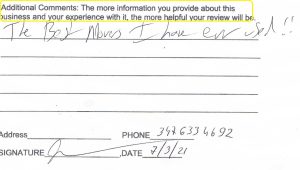 Additional Comments: The more information you provide about this
business and your experience with it, the more helpful your review will be.
The Best Movers I have ever used!!
Address PHONE 3476334692
SIGNATURE DATE 7/3/21